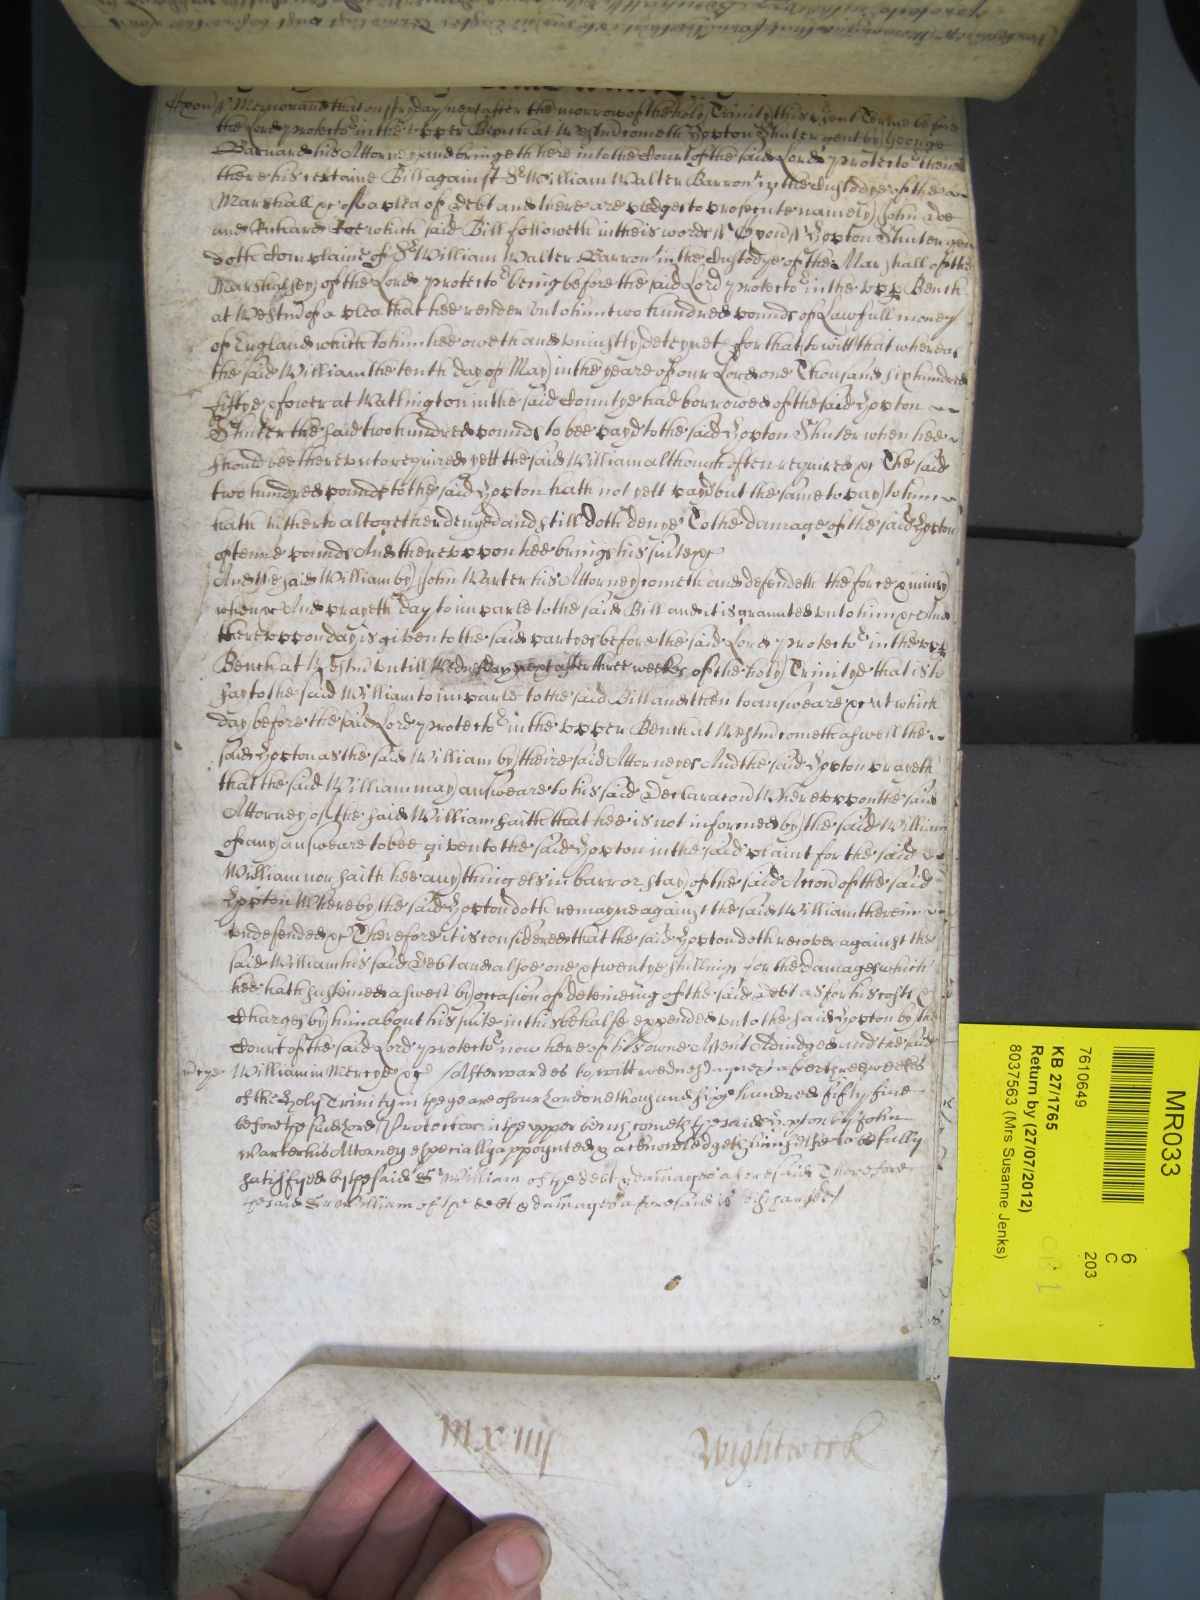 Oxon ss Memorand that on Fryday next after the morrow of the holy Trinity this p'sent Terme before
the Lord protector in the upper Bench at Westm cometh Hopton Shuter gent by George
Barnard his Attorney and bringeth here into the Court of the said Lord protector then
there his certaine Bill against Sr William Walter Barront in the Custodye of the
Marshall &c of a plea of debt and there are pledges to prosecute namely John Doe
and Richard Roe which said Bill followeth in theis words ss Oxon ss Hopton Shuter gent
doth Complaine of Sr William Walter Barront in the Custodye of the Marshall of the
Marshalsey of the Lord protector being before the said Lord protector in the upp Bench
at Westm of a plea that hee render unto him two hundred pounds of Lawfull money
of England which to him hee oweth and uniustly deteynet for that to witt that whereas
the said William the tenth day of May in the yeare of our Lord one Thousand six hundred
fiftye & fower at Watlington in the said Countye had borrowed of the said Hopton
Shuter the said two hundred pounds to bee payd to the said Hopton Shuter when hee
should bee thereunto required yett the said William although often required &c The said
two hundred pounds to the said Hopton hath not yett payd but the same to pay to him
hath hitherto altogether denyed and still doth denye To the damage of the said Hopton
of tenne pounds And thereuppon hee brings his suite &c
And the said William by John Warter his Attorney cometh and defendeth the force & iniury
when &c And prayeth day to imparle to the said Bill and it is graunted unto him &c And
thereuppon day is given to the said partyes before the said Lord protector in the upp
Bench at Westm untill Wednesday next after three weekes of the holy Trinitye that is to
say to the said William to imparle to the said Bill and then to answeare &c At which
day before the said Lord protector in the upper Bench at Westm cometh aswell the
said Hopton as the said William by theire said Attorneyes And the said Hopton prayeth
that the said William may answeare to his said Declaracon Whereuppon the said
Attorney of the said William saith that hee is not informed by the said William
of any answeare to bee given to the said Hopton in the said plaint for the said
William nor saith hee any thing els in barr or stay of the said Accon of the said
Hopton Whereby the said Hopton doth remayne against the said William therein
undefended &c Therefore it is considered that the said Hopton doth recover against the
said William his said Debt and alsoe one & twentye shillings for the damages which
hee hath susteined aswell by occasion of deteineing of the said Debt as for his costs &
Charges by him about his suite in this behalfe expended unto the said Hopton by the
Court of the said Lord protector now here of his owne Assent Adiudged And the said
mercye William in Mercye &c Afterwardes to witt wednesday next after three weekes
of the Holy Trinity in the yeare of our Lord one thousand six hundred fifty five
before the said Lord Protector in the upper bench cometh the said Hopton by John
Warter his Attorney especially appoynted & acknowledgeth himselfe to bee fully
satisfyed by the said Sr William of the debt & damages aforesaid Therefore
the said Sr William of the debt & damages aforesaid is discharged
M x iiij Wightwick
MR033
7610649
6
C
203
KB 27/1765
Return by (27/07/2012)
8037563 (Mrs Susanne Jenks)